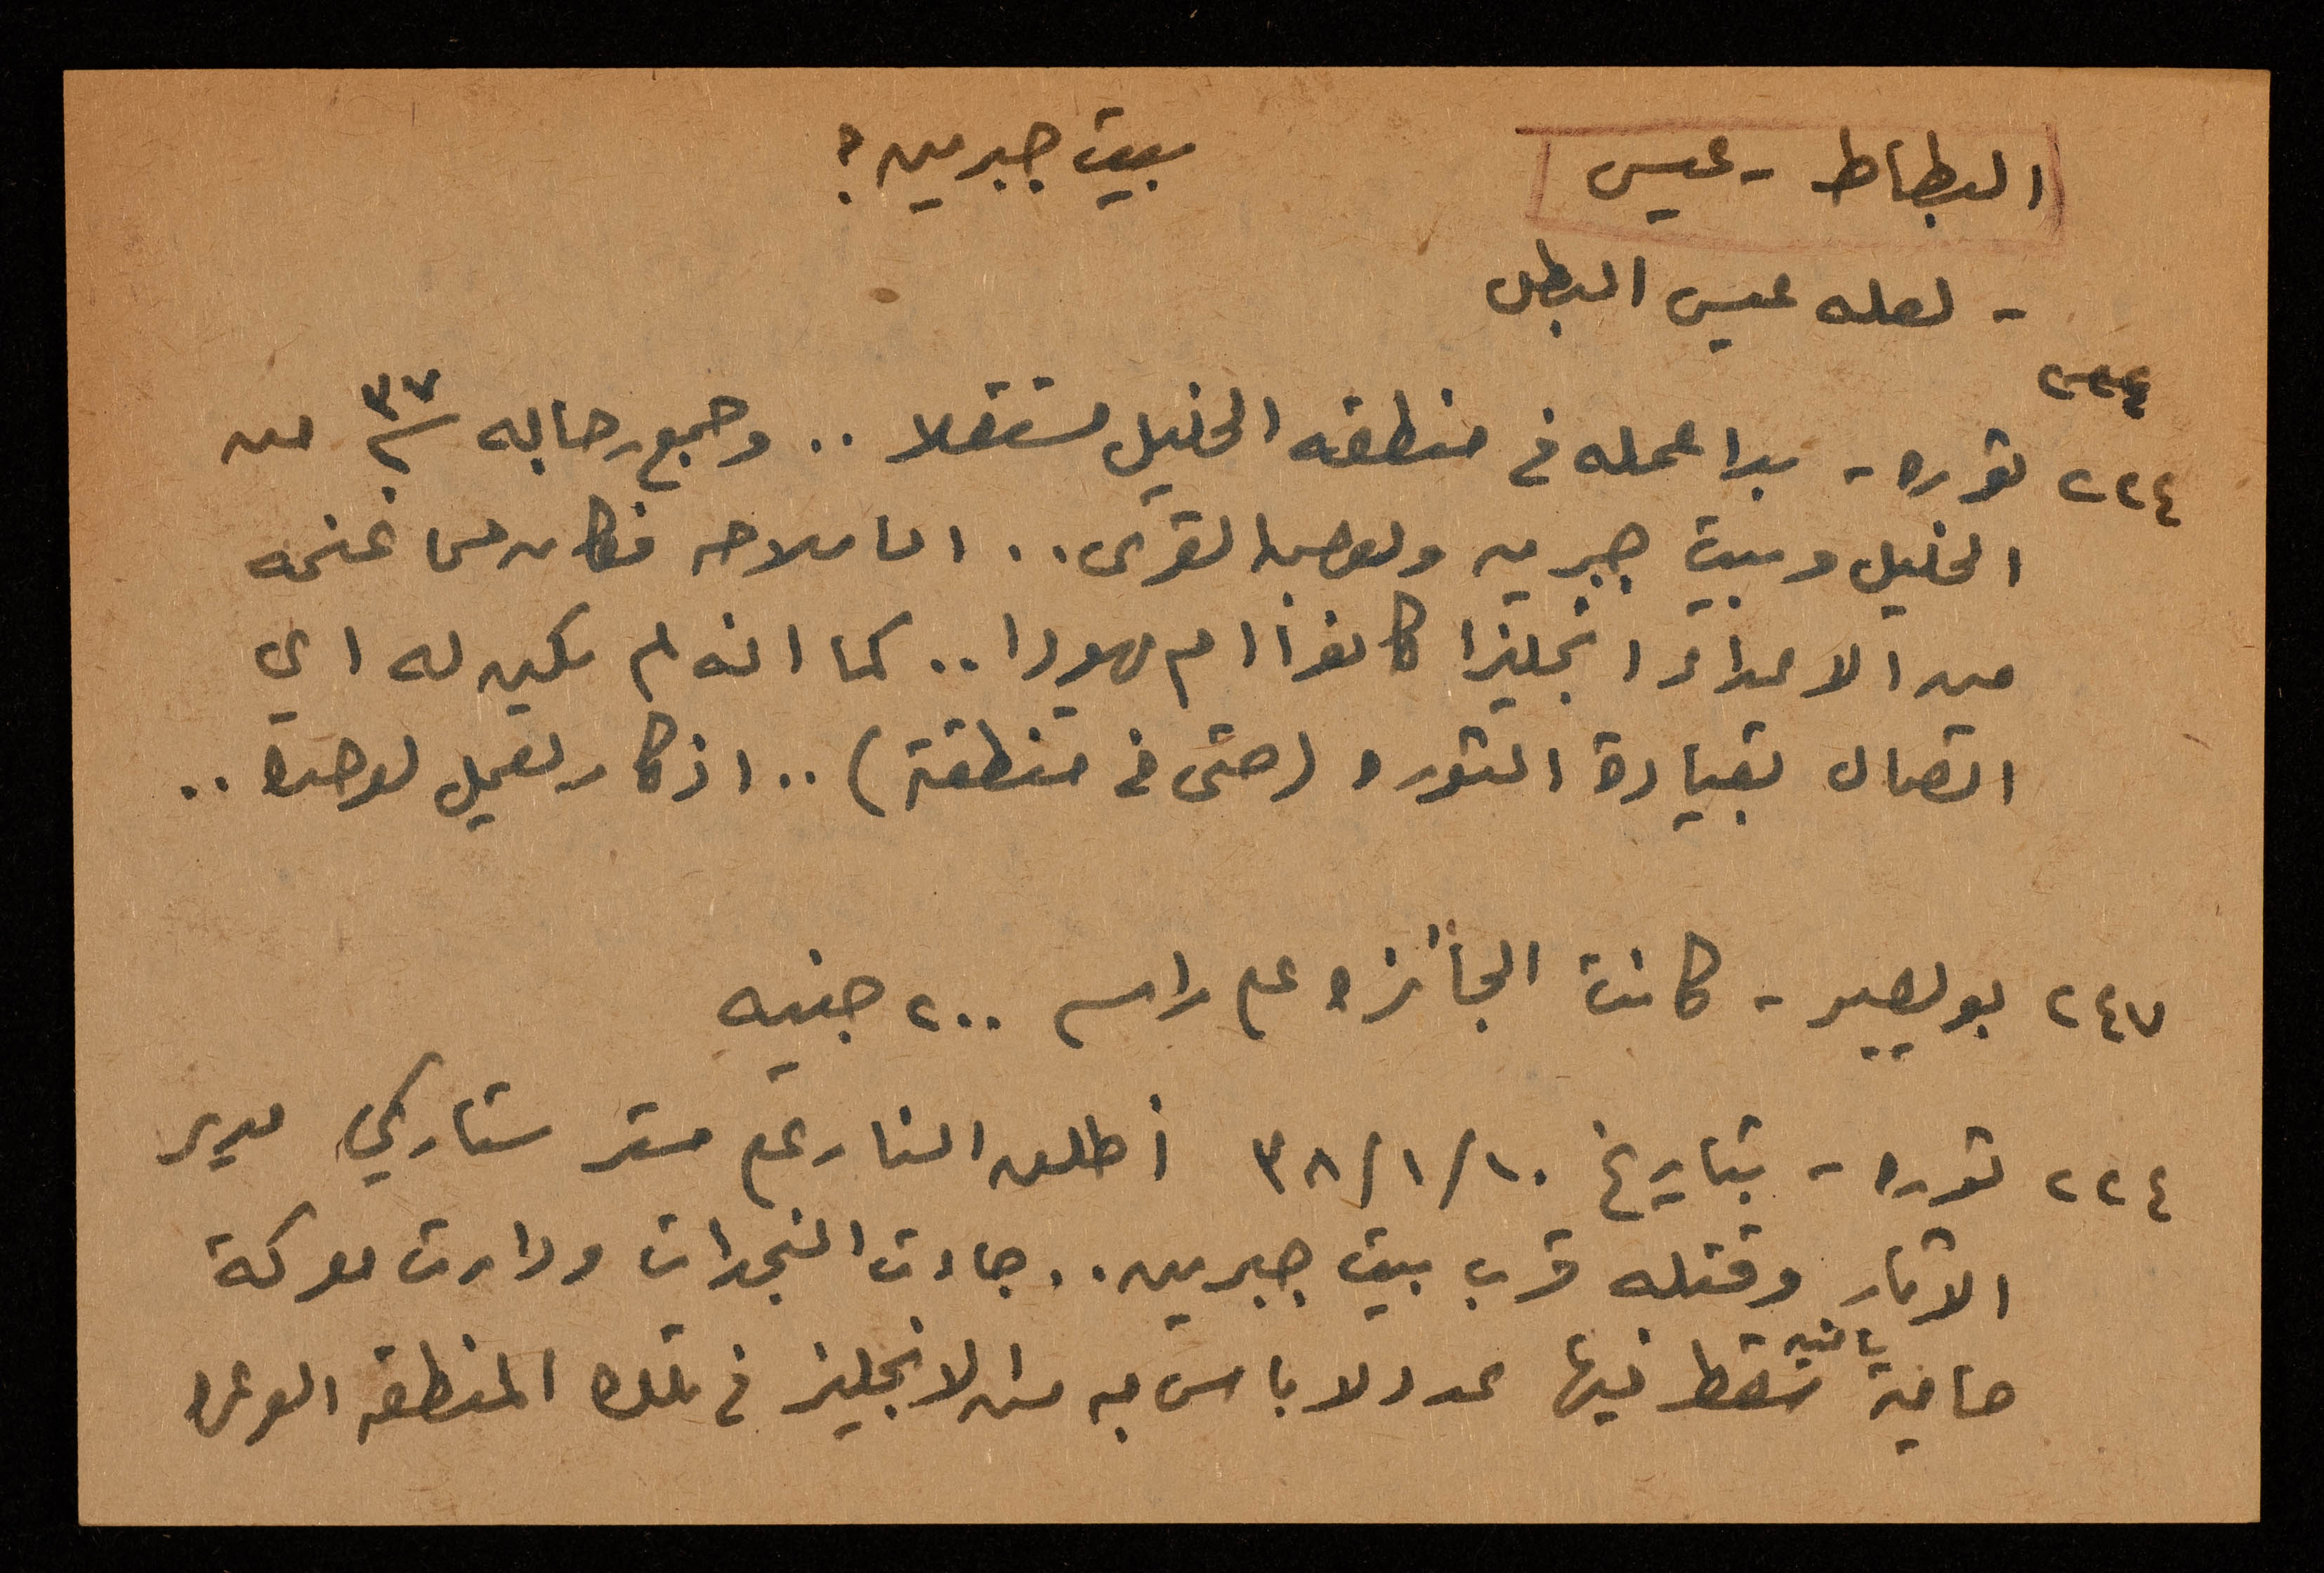 البطاط - عيسى
بيت جبرين ؟
- لعله عيسى البطل
٢٢٤
٢٢٤ ثوره - بدا عمله في منطقه الخليل مستقلا .. وجمع رجاله ٣٧ من
الخليل وبيت جبرين وبعض القرى .. اما سلاحه فكان مما غنمه
من الاعداء انجليزا كانوا ام يهودا .. كما انه لم يكن له اي
اتصال بقيادة الثوره (حتى في منطقة) .. اذ كان يعمل لوحده ..
٢٤٧ بويصير - كانت الجائزه على راسه ٢٠٠ جنيه
٢٢٤ ثوره - بتاريخ ٣٨/١/١٠ أطلق النار على مستر ستاركي مدير
الاثار وقتله قرب بيت جبرين .. جاءت النجدات ودارت معركة
حامية سقط فيها عدد لا باس به من الانجليز في تلك المنطقه الوعره